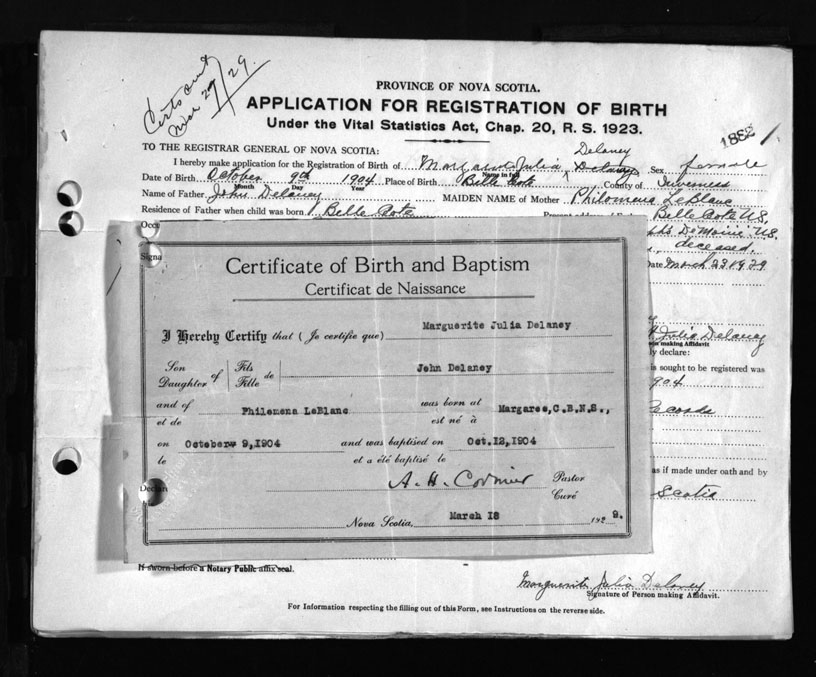 Certs out
Mar 27/29.
PROVINCE OF NOVA SCOTIA.
APPLICATION FOR REGISTRATION OF BIRTH
Under the Vital Statistics Act, Chap. 20, R. S. 1923.
1882
TO THE REGISTRAR GENERAL OF NOVA SCOTIA:
Delaney
I hereby make application for the Registration of Birth of Julia Delaney Sex female
Name in full
Date of Birth October 9th 1904 Place of Birth Belle Cote County of Inverness
Month Day Year
Name of Father John Delaney MAIDEN NAME of Mother Philomena LeBlanc
Residence of Father when child was born Belle Cote Belle Cote N.S.
Occ
deceased.
Signa
Date March 23 1929
Certificate of Birth and Baptism
Certificat de Naissance
I Hereby Certify that (Je certifie que) Marguerite Julia Delaney
Julia Delaney
son making Affidavit
ly declare:
Son Fils
of de John Delaney
Daughter Fille
is sought to be registered was
904
and of Philomena LeBlanc was born at Margaree, C.B.N.S.,
et de est né à
Records
on October 9, 1904 and was baptised on Oct. 12, 1904
le et a été baptisé le
as if made under oath and by
A. H. Cormier Pastor
Curé
Scotia
Declar
Nova Scotia, March 18 192 9.
If sworn before a Notary Public affix seal.
Marguerite Julia Delaney
Signature of Person making Affidavit.
For Information respecting the filling out of this Form, see Instructions on the reverse side.